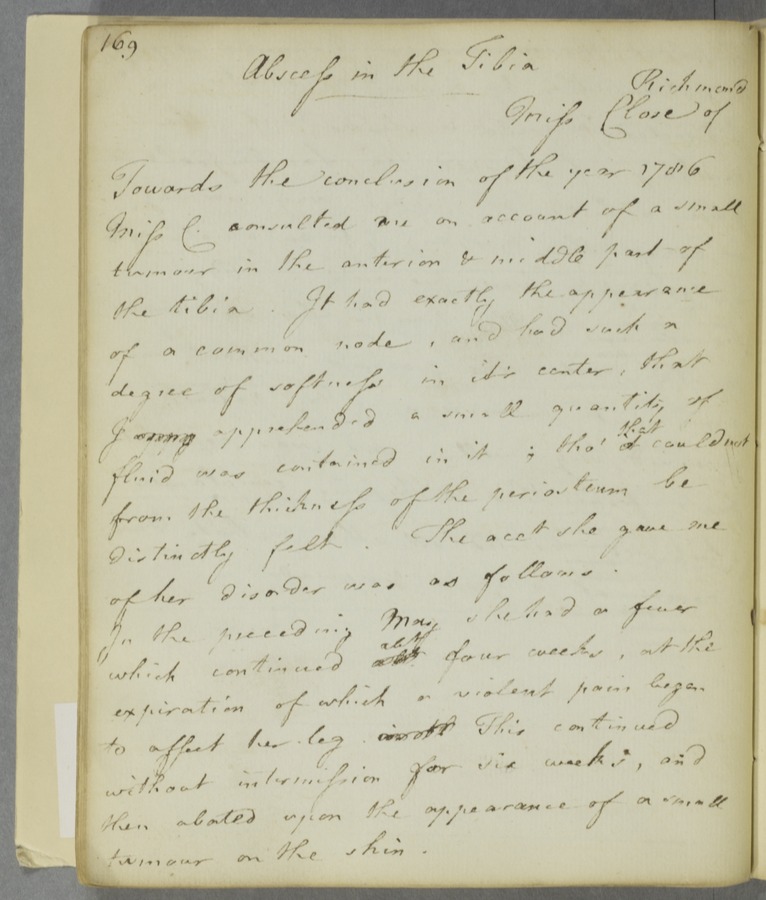 169
Abscess in the Tibia
Richmond
Miss Close of
Towards the conclusion of the year 1786
Miss C. consulted me on account of a small
tumour in the anterior & middle part of
the tibia. It had exactly the appearance
of a common node, and had such a
degree of softness in it's center, that
I apprehended a small quantity of
fluid was contained in it; tho' that could not
from the thickness of the periosteum be
distinctly felt. The acct she gave me
of her disorder was as follows.
In the preceding May she had a fever
which continued abt four weeks, at the
expiration of which a violent pain began
to affect her leg. This continued
without intermission for six weeks, and
then abated upon the appearance of a small
tumour on the shin.